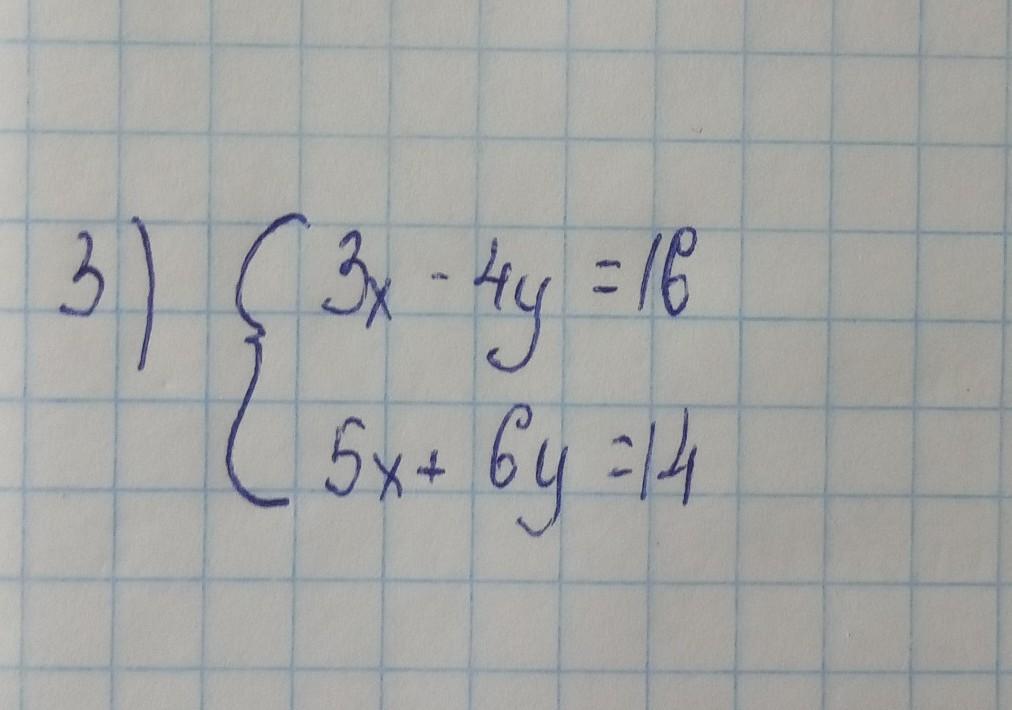 3) { 3x - 4y = 16
5x + 6y = 14